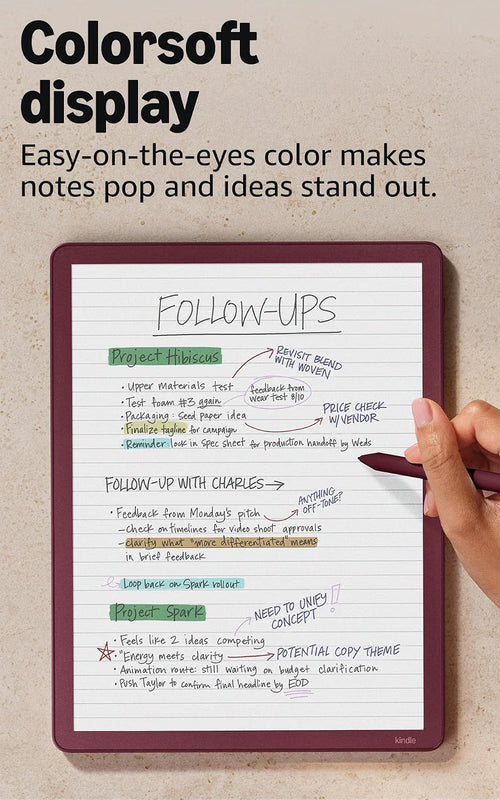 Colorsoft
display
Easy-on-the-eyes color makes
notes pop and ideas stand out.
FOLLOW-UPS
Project Hibiscus
REVISIT BLEND
WITH WOVEN
• Upper materials test
• Test foam #3 again
feedback from
wear test 8/10
• Packaging: Seed paper idea
PRICE CHECK
W/VENDOR
• Finalize tagline for campaign
• Reminder: lock in spec sheet for production handoff by Weds
FOLLOW-UP WITH CHARLES→
ANYTHING
OFF-TONE?
• Feedback from Monday's pitch
– check on timelines for video shoot approvals
– clarify what "more differentiated" means
in brief feedback
Loop back on Spark rollout
Project Spark
NEED TO UNIFY
CONCEPT!
• Feels like 2 ideas competing
• "Energy meets clarity → POTENTIAL COPY THEME
• Animation route: still waiting on budget clarification
• Push Taylor to confirm final headline by EOD
kindle